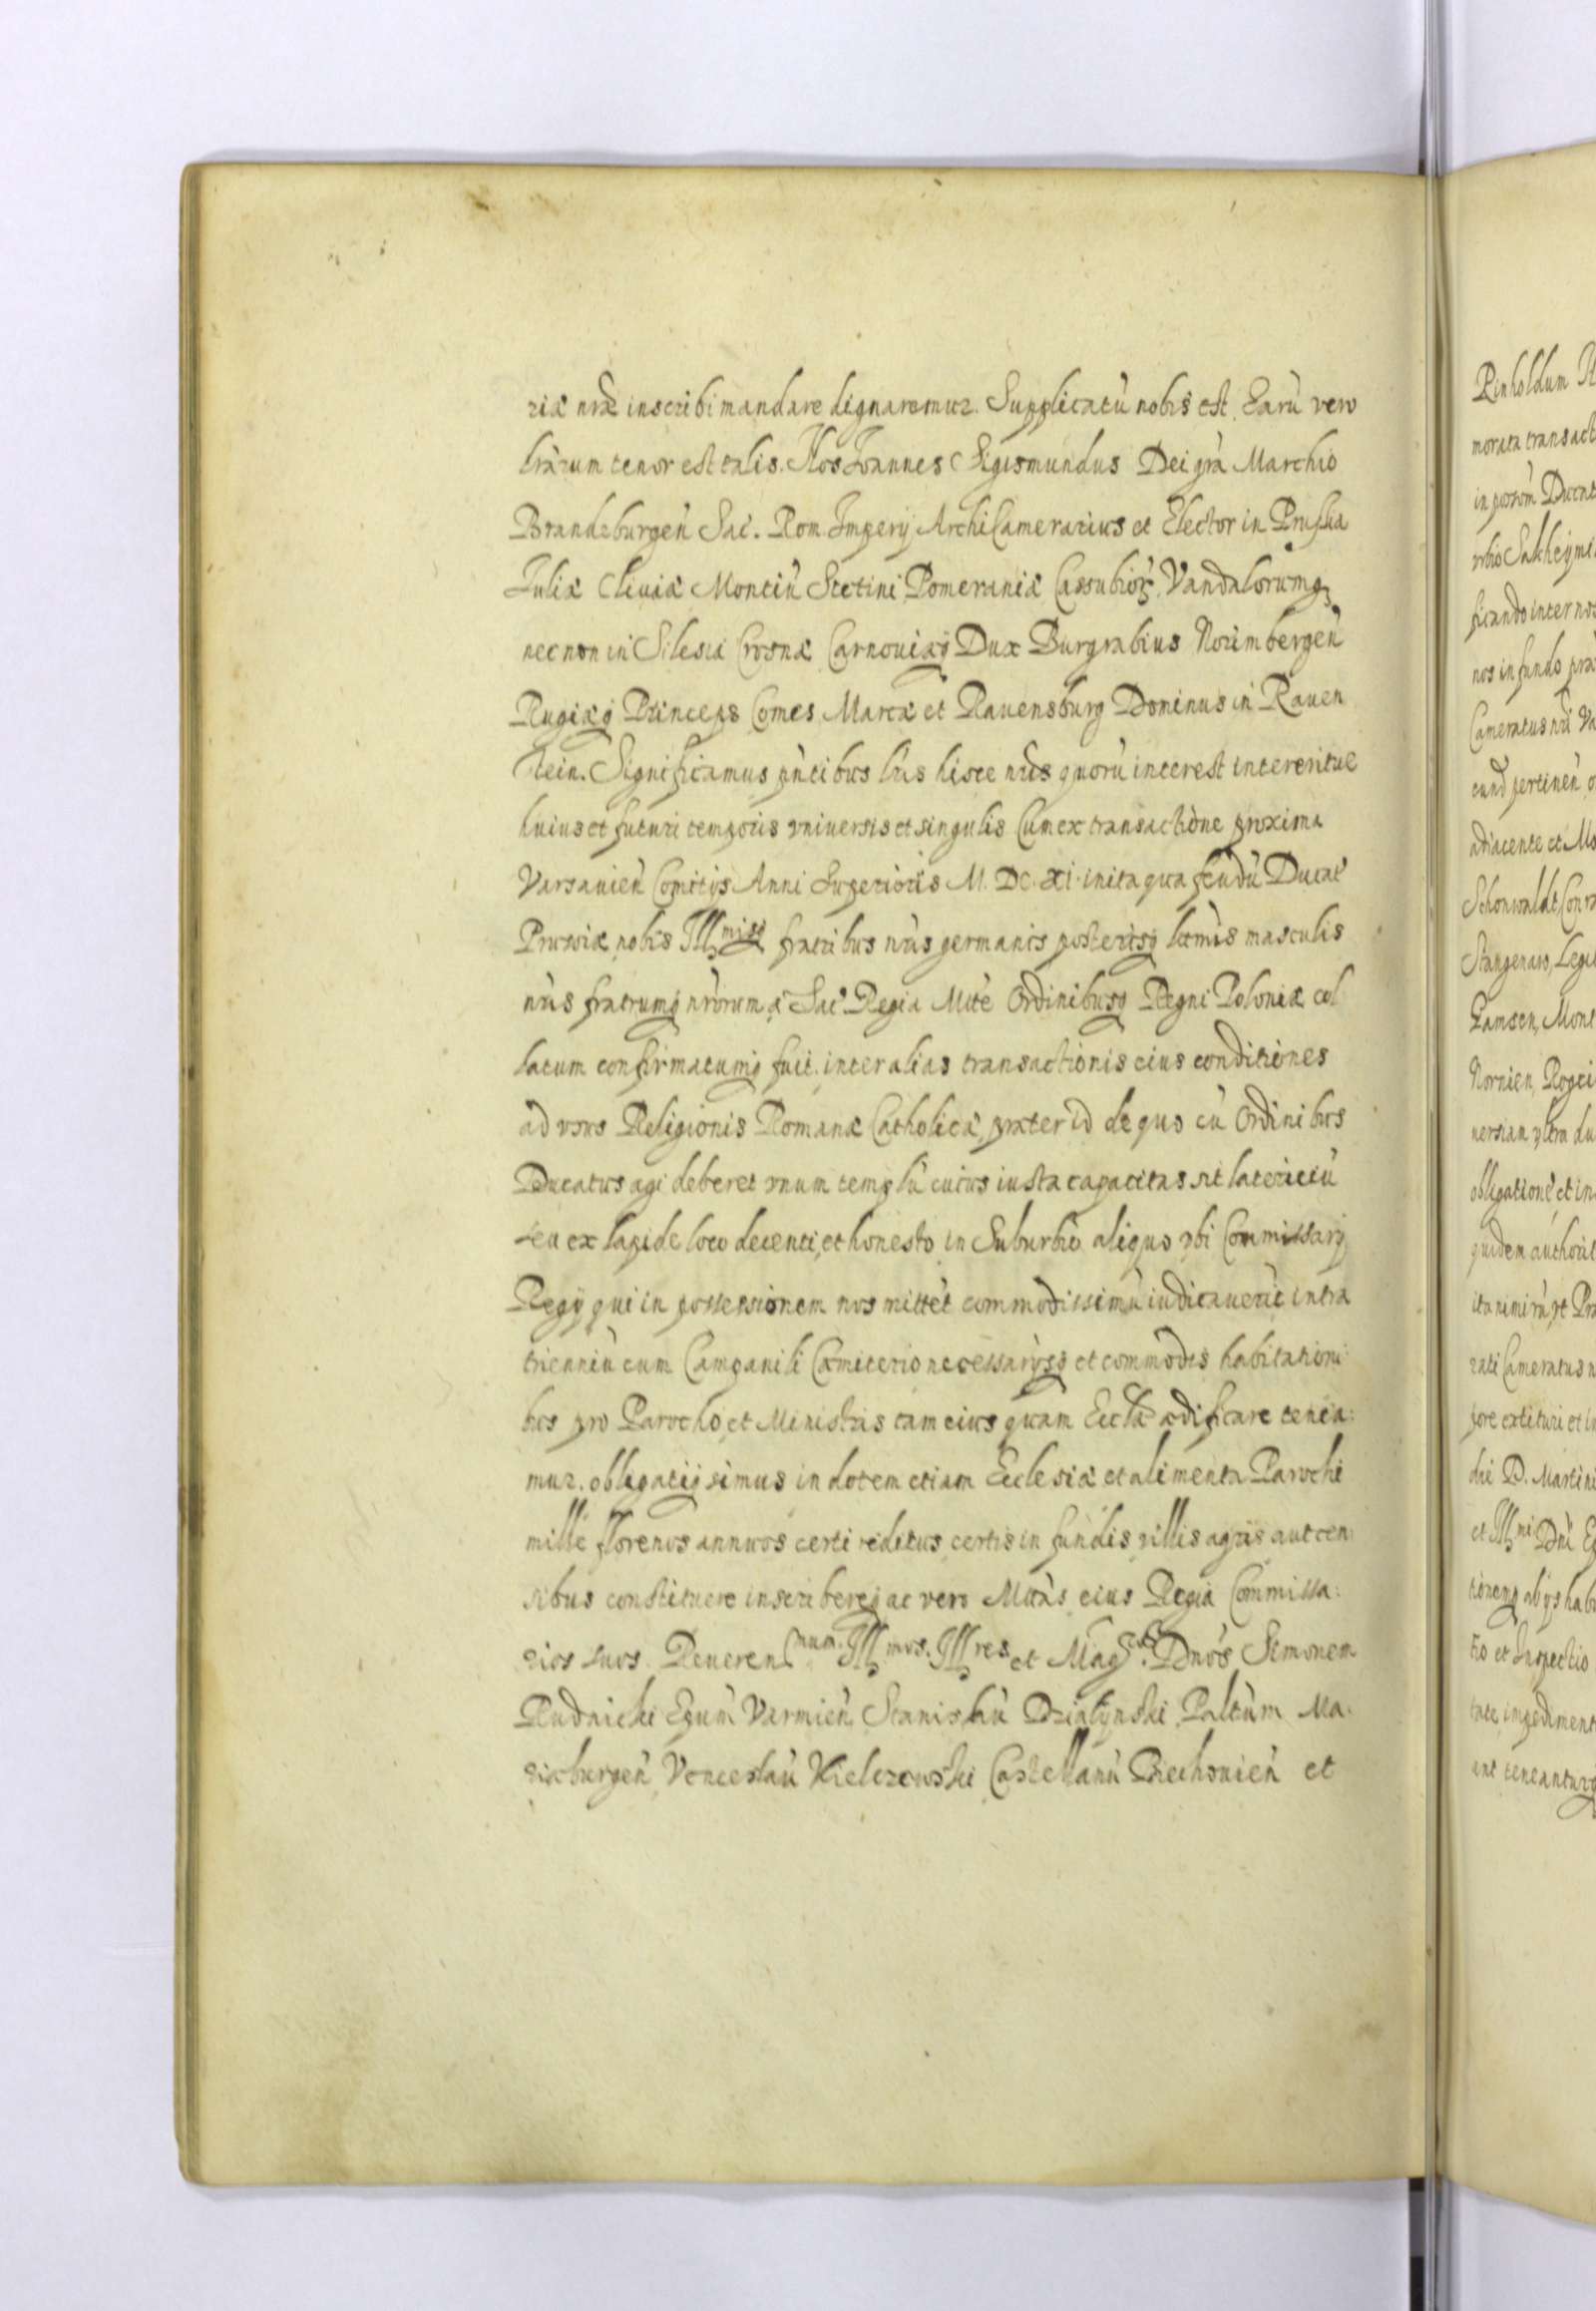 riæ nr̃æ inscribi mandare dignaremur. Supplicatũ nobis est. Earũ vero
lr̃arum tenor est talis. Nos Joannes Sigismundus Dei grã Marchio
Brandeburgeñ Sac̃. Rom. Imperij ArchiCamerarius et Elector in Prussia
Juliæ Cliuiæ Montiũ Stetini Pomeraniæ Cassubiorꝝ Vandalorumqꝫ
nec non in Silesia Crosnæ Carnouiæqꝫ Dux Burgrabius Norimbergeñ
Rugiæqꝫ Princeps Comes Marcæ et Rauensburg Dominus in Rauen
stein. Significamus pñtibus lr̃is hisce nr̃is quorũ interest intereritue
huius et futuri temporis vniuersis et singulis Cum ex transactione proxima
Varsauieñ Comitijs Anni Superioris M. DC. XI. inita qua feudũ Ducat9
Prussiæ nobis Ill^misqꝫ fratribus nr̃is germanis posterisqꝫ ltĩmis masculis
nr̃is fratrumqꝫ nr̃orum a Sac̃ Regia Mtẽ Ordinibusqꝫ Regni Poloniæ col
latum confirmatumqꝫ fuit. inter alias transactionis eius conditiones
ad vsus Religionis Romanæ Catholicæ, præter id de quo cũ Ordinibus
Ducatus agi deberet vnum templũ cuius iusta capacitas sit latericiũ
seu ex lapide loco decenti, et honesto in Suburbio aliquo vbi Commissarij
Regij qui in possessionem nos mittẽt commodissimũ iudicauerit intra
trienniũ cum Campanili Cæmiterio necessarijsqꝫ et commodis habitationi
bus pro Parocho, et Ministris tam eius quam Ecclæ ædificare tenea:
mur. obligatiqꝫ simus in dotem etiam Ecclesiæ et alimenta Parochi
mille florenos annuos certi reditus certis in fundis villis agris aut cen:
sibus constituere inscribereqꝫ ac vero Mtas eius Regia Commissa:
rios suos Reueren^dnum. Ill^mos. Ill^res et Mag^cos. Dnos Simonem
Rudnicki Ep̃um Varmieñ Stanislaũ Dzialÿnski Paltũm Ma:
rieburgeñ Venceslaũ Kielczewski Castellanũ Biechouieñ et
Rinholdum
morata transact
in possõm Ducat
ficando inter nos
nos in fundo præ
Cameratus nr̃i
cund pertineñ
adiacente et
Schonwaldt
Stangenaw, Legi
obligationẽ et in
quidem authorit
ita nimirũ vt
rati Cameratus
fore extituri et
dni D. Martini
et Ill^mi Dni